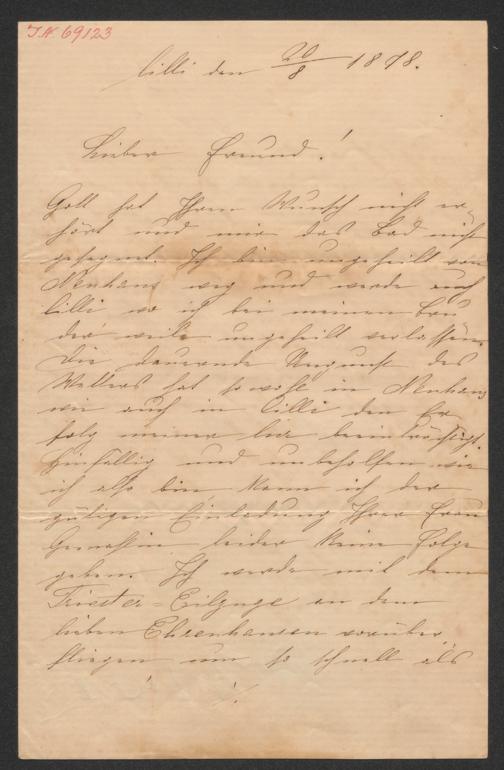 I.N. 69123
Cilli den 20/8 1878.
Lieber Freund!
Gott hat Ihren Wunsch nicht er-
hört und mir das Bad nicht
gesegnet. Ich bin ungeheilt von
Neuhaus weg und werde auch
Cilli wo ich bei meinem Bru
der weile ungeheilt verlassen.
Die dauernde Ungunst des
Wetters hat sowohl in Neuhaus
wie auch in Cilli den Er
folg meiner beeinträchtigt.
Hinfällig und unbeholfen wie
ich also bin, kann ich der
gütigen Einladung Ihrer Frau
Gemahlin leider keine Folge
geben. Ich werde mit dem
Triester-Eilzuge an dem
lieben Ehrenhausen vorüber
fliegen um so schnell als
./.